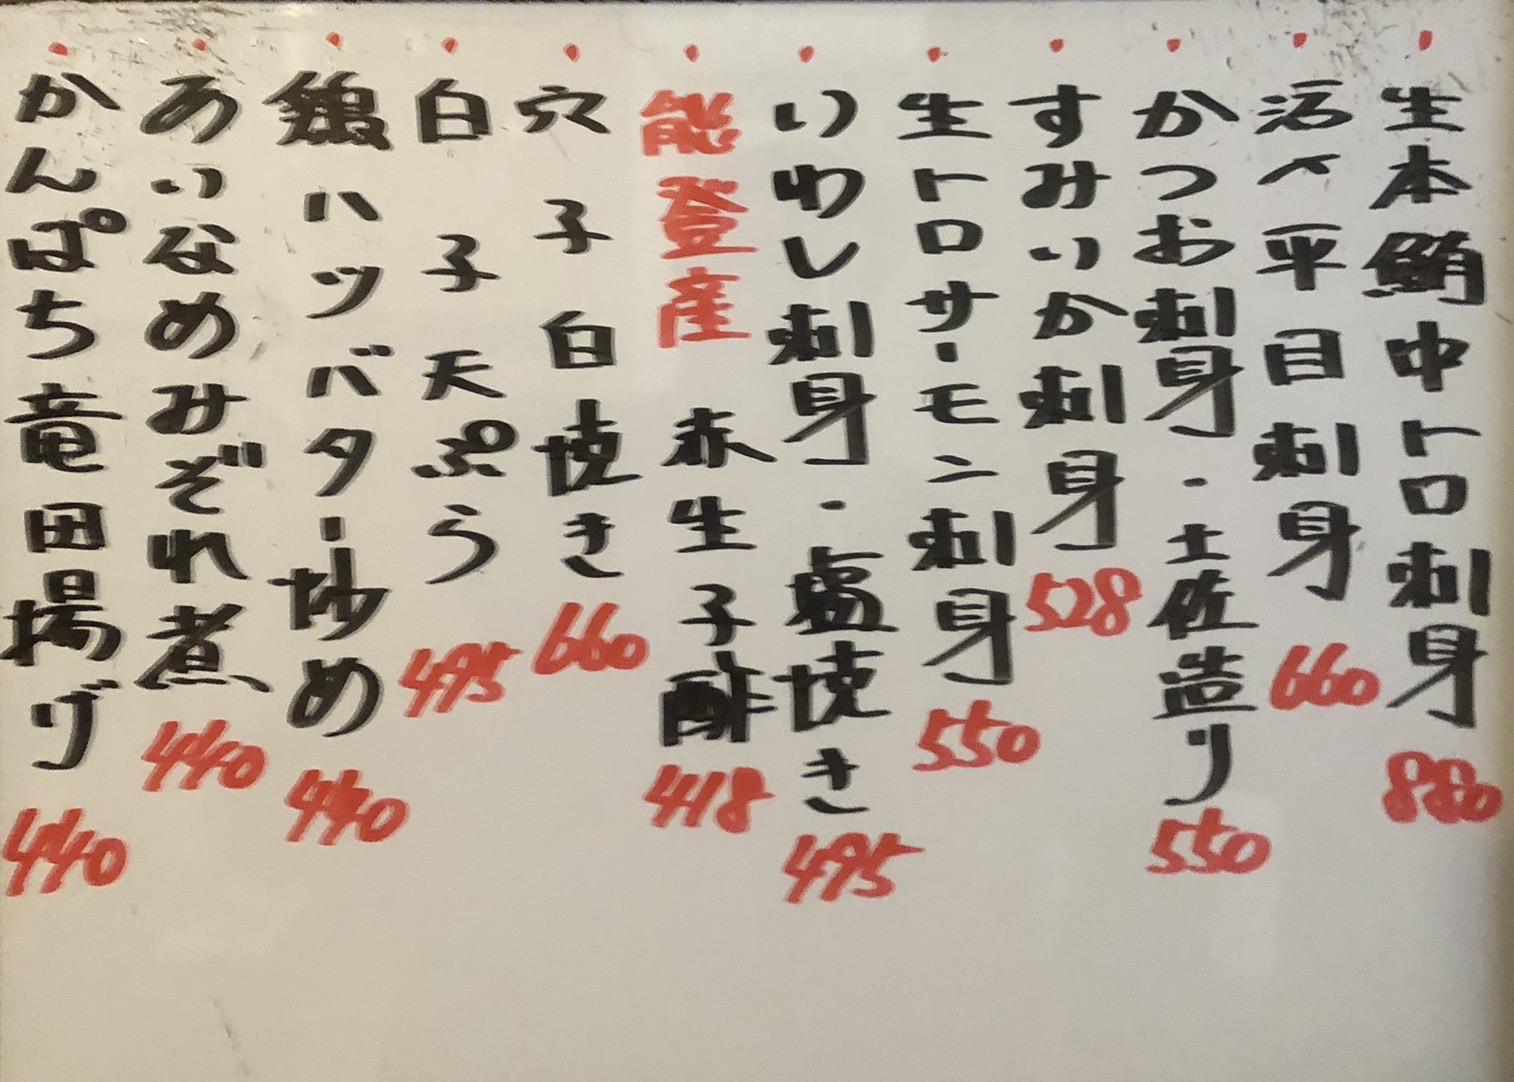 生本鮪中トロ刺身 880
活〆平目刺身 660
かつお刺身・土佐造り 550
すみいか刺身 528
生トロサーモン刺身 550
いわし刺身・塩焼き 495
能登産 赤生子酢 418
穴子白焼き 660
白子天ぷら 495
鶏ハツバター炒め 440
あいなめみぞれ煮 440
かんぱち竜田揚げ 440